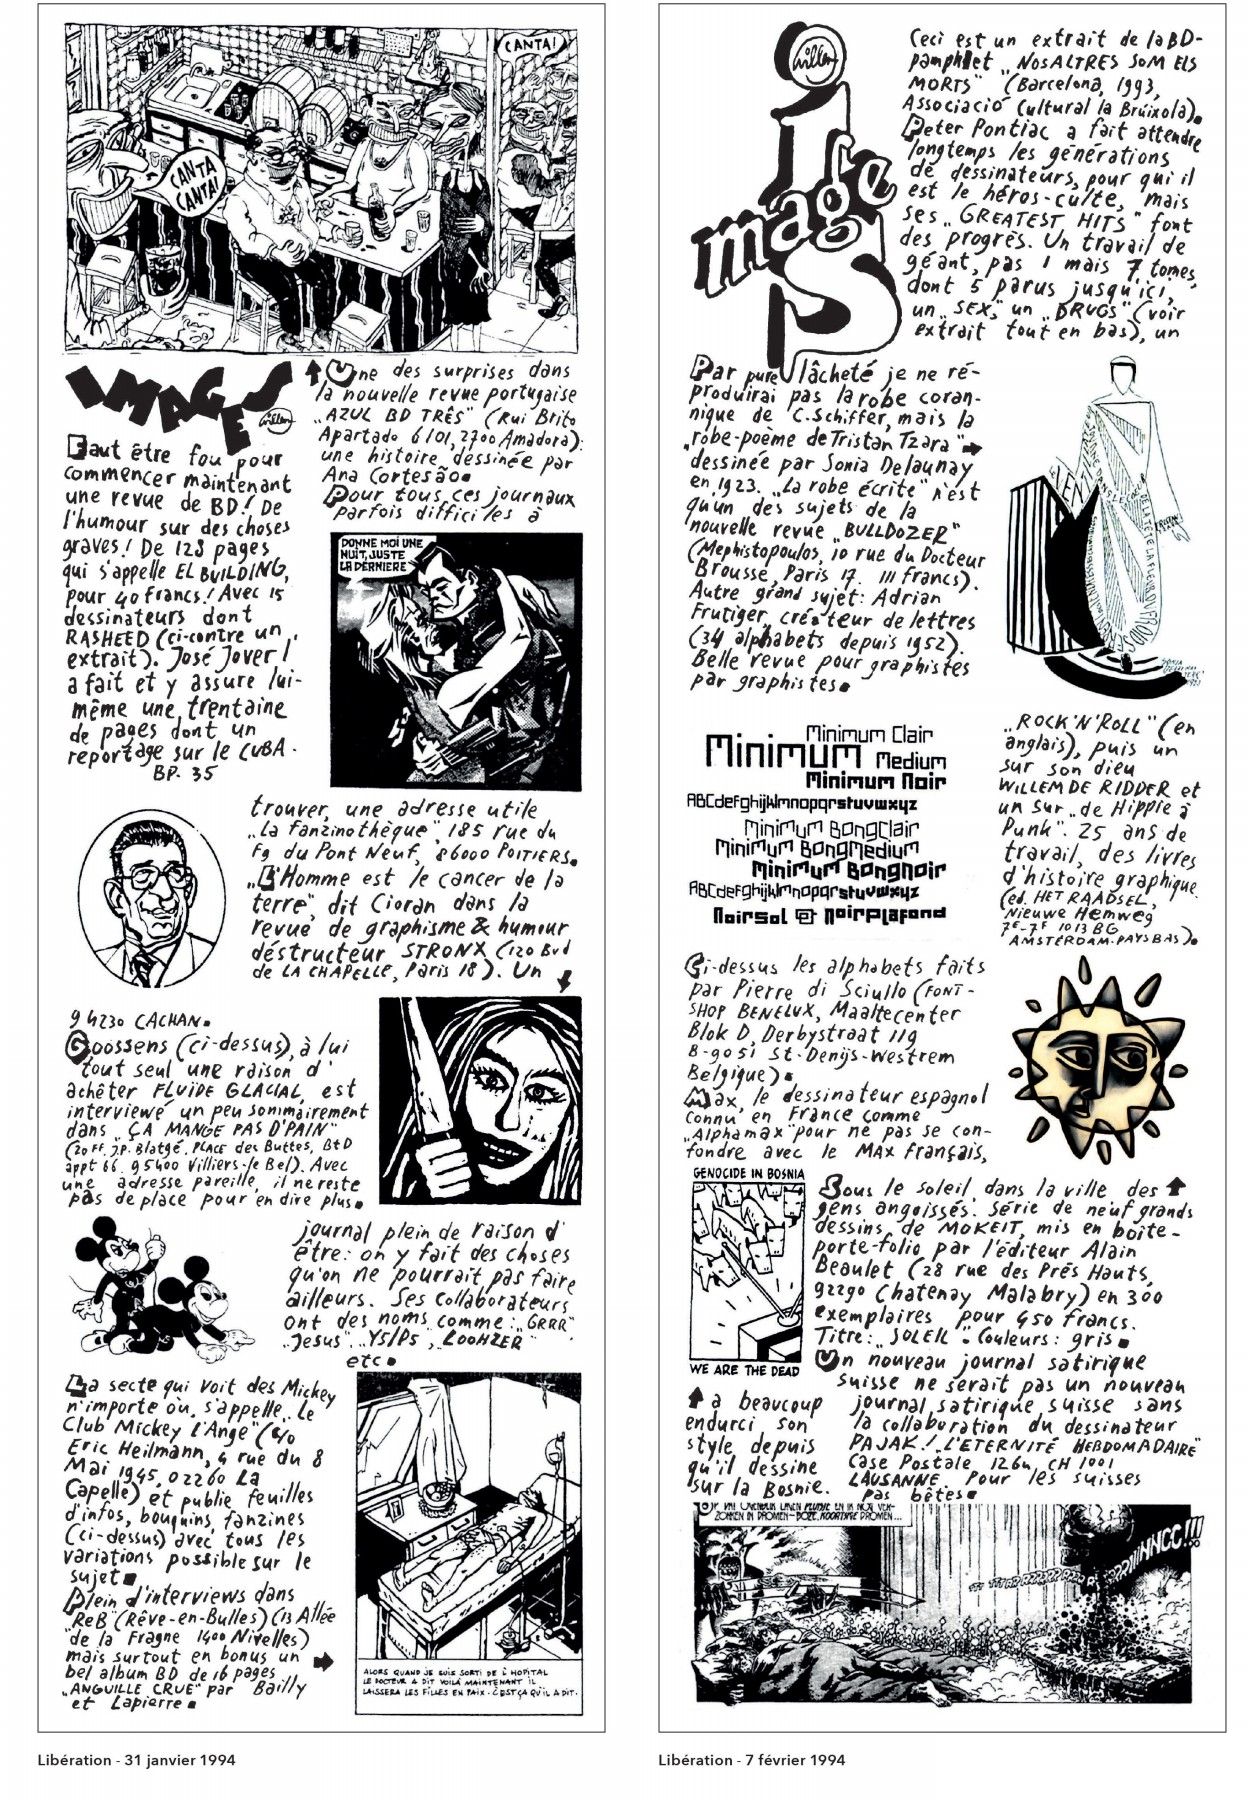 CANTA!
CANTA
CANTA!
IMAGES
Willem
Faut être fou pour
commencer maintenant
une revue de BD! De
l'humour sur des choses
graves! De 128 pages
qui s'appelle EL BUILDING,
pour 40 francs! Avec 15
dessinateurs dont
RASHEED (ci-contre un
extrait). José Jover
a fait et y assure lui-
même une trentaine
de pages dont un
reportage sur le CUBA.
BP. 35
Une des surprises dans
la nouvelle revue portugaise
„AZUL BD TRÊS" (Rui Brito
Apartado 6101, 2700 Amadora):
une histoire dessinée par
Ana Cortesão.
Pour tous ces journaux
parfois difficiles à
DONNE MOI UNE
NUIT, JUSTE
LA DERNIERE
trouver, une adresse utile
„La fanzinothèque", 185 rue du
Fg du Pont Neuf, 86000 POITIERS.
„L'Homme est le cancer de la
terre", dit Cioran dans la
revue de graphisme & humour
déstructeur STRONX (120 Bvd
de LA CHAPELLE, Paris 18). Un
94230 CACHAN.
Goossens (ci-dessus), à lui
tout seul une raison d'
achéter FLUIDE GLACIAL, est
interviewé un peu sommairement
dans „ÇA MANGE PAS D'PAIN"
(20 FF. J.P. Blatgé, PLACE des Buttes, BtD
appt 66. 95400 Villiers-le Bel). Avec
une adresse pareille, il ne reste
pas de place pour en dire plus.
journal plein de raison d'
être: on y fait des choses
qu'on ne pourrait pas faire
ailleurs. Ses collaborateurs
ont des noms comme: „GRRR"
„Jesus", „Y5/P5", „LOOHZER"
etc.
La secte qui voit des Mickey
n'importe où, s'appelle „Le
Club Mickey l'Ange" (c/o
Eric Heilmann, 4 rue du 8
Mai 1945, 02260 La
Capelle) et publie feuilles
d'infos, bouquins, fanzines
(ci-dessus) avec tous les
variations possible sur le
sujet.
Plein d'interviews dans
„ReB" (Rêve-en-Bulles) (13 Allée
de la Fragne 1400 Nivelles)
mais surtout en bonus un
bel album BD de 16 pages
„ANGUILLE CRUE" par Bailly
et Lapierre.
ALORS QUAND JE SUIS SORTI DE L'HOPITAL
LE DOCTEUR A DIT VOILÀ MAINTENANT IL
LAISSERA LES FILLES EN PAIX. C'EST ÇA QU'IL A DIT.
Libération - 31 janvier 1994
Willem
Images
Ceci est un extrait de la BD-
pamphlet „NOSALTRES SOM ELS
MORTS" (Barcelona, 1993,
Associació Cultural la Brúixola).
Peter Pontiac a fait attendre
longtemps les générations
de dessinateurs, pour qui il
est le héros-culte, mais
ses „GREATEST HITS" font
des progrès. Un travail de
géant, pas 1 mais 7 tomes,
dont 5 parus jusqu'ici,
un „SEX", un „DRUGS" (voir
extrait tout en bas), un
Par pure lâcheté je ne ré-
produirai pas la robe coran-
nique de C. Schiffer, mais la
„robe-poème de Tristan Tzara"
dessinée par Sonia Delaunay
en 1923. „La robe écrite" n'est
qu'un des sujets de la
nouvelle revue „BULLDOZER"
(Mephistopoulos, 10 rue du Docteur
Brousse, Paris 17. 111 francs).
Autre grand sujet: Adrian
Frutiger, créateur de lettres
(34 alphabets depuis 1952).
Belle revue pour graphistes
par graphistes.
„ROCK'N'ROLL" (en
anglais), puis un
sur son dieu
WILLEM DE RIDDER et
un sur „de Hippie à
Punk". 25 ans de
travail, des livres
d'histoire graphique.
(ed. HET RAADSEL,
Nieuwe Hemweg
7E-7F 1013 BG
AMSTERDAM-PAYS BAS).
Minimum Clair
Minimum Medium
Minimum Noir
ABCdefghijklmnopqrstuvwxyz
Minimum BongClair
Minimum BongMedium
Minimum BongNoir
ABCdefghijklmnopqrstuvwxyz
NoirSol @ NoirPlafond
Ci-dessus les alphabets faits
par Pierre di Sciullo (FONT-
SHOP BENELUX, Maaltecenter
Blok D, Derbystraat 119
B-9051 St-Denijs-Westrem
Belgique).
Max, le dessinateur espagnol
connu en France comme
„Alphamax" pour ne pas se con-
fondre avec le MAX français,
GENOCIDE IN BOSNIA
WE ARE THE DEAD
a beaucoup
endurci son
style depuis
qu'il dessine
sur la Bosnie.
Sous le soleil, dans la ville des
gens angoissés. Série de neuf grands
dessins de MOKEIT, mis en boîte-
porte-folio par l'éditeur Alain
Beaulet (28 rue des Prés Hauts,
92290 Chatenay Malabry) en 300
exemplaires pour 450 francs.
Titre: „SOLEIL". Couleurs: gris.
Un nouveau journal satirique
suisse ne serait pas un nouveau
journal satirique suisse sans
la collaboration du dessinateur
PAJAK! „L'ETERNITÉ HEBDOMADAIRE"
Case Postale 1264, CH 1001
LAUSANNE. Pour les suisses
pas bêtes.
ZOKKEN IN DROMEN - BOZE, KOORTSIGE DROMEN...
Libération - 7 février 1994